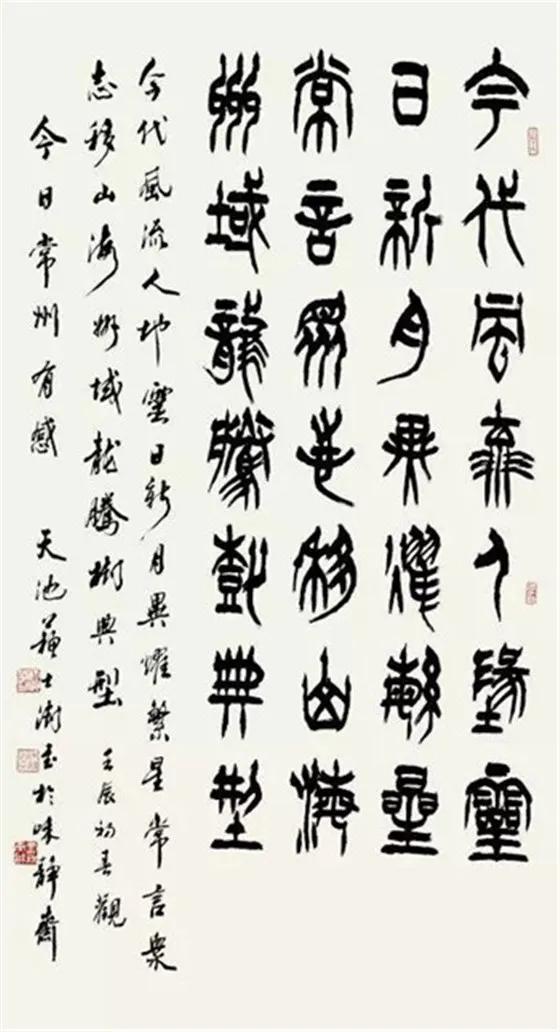 今代風流人墬靈
日新月異耀繁星
常言衆志移山海
州域龍騰樹典型
今代風流人地靈日新月異耀繁星常言衆
志移山海州域龍騰樹典型 壬辰初春觀
今日常州有感 天池蘇士澍書於味靜齋